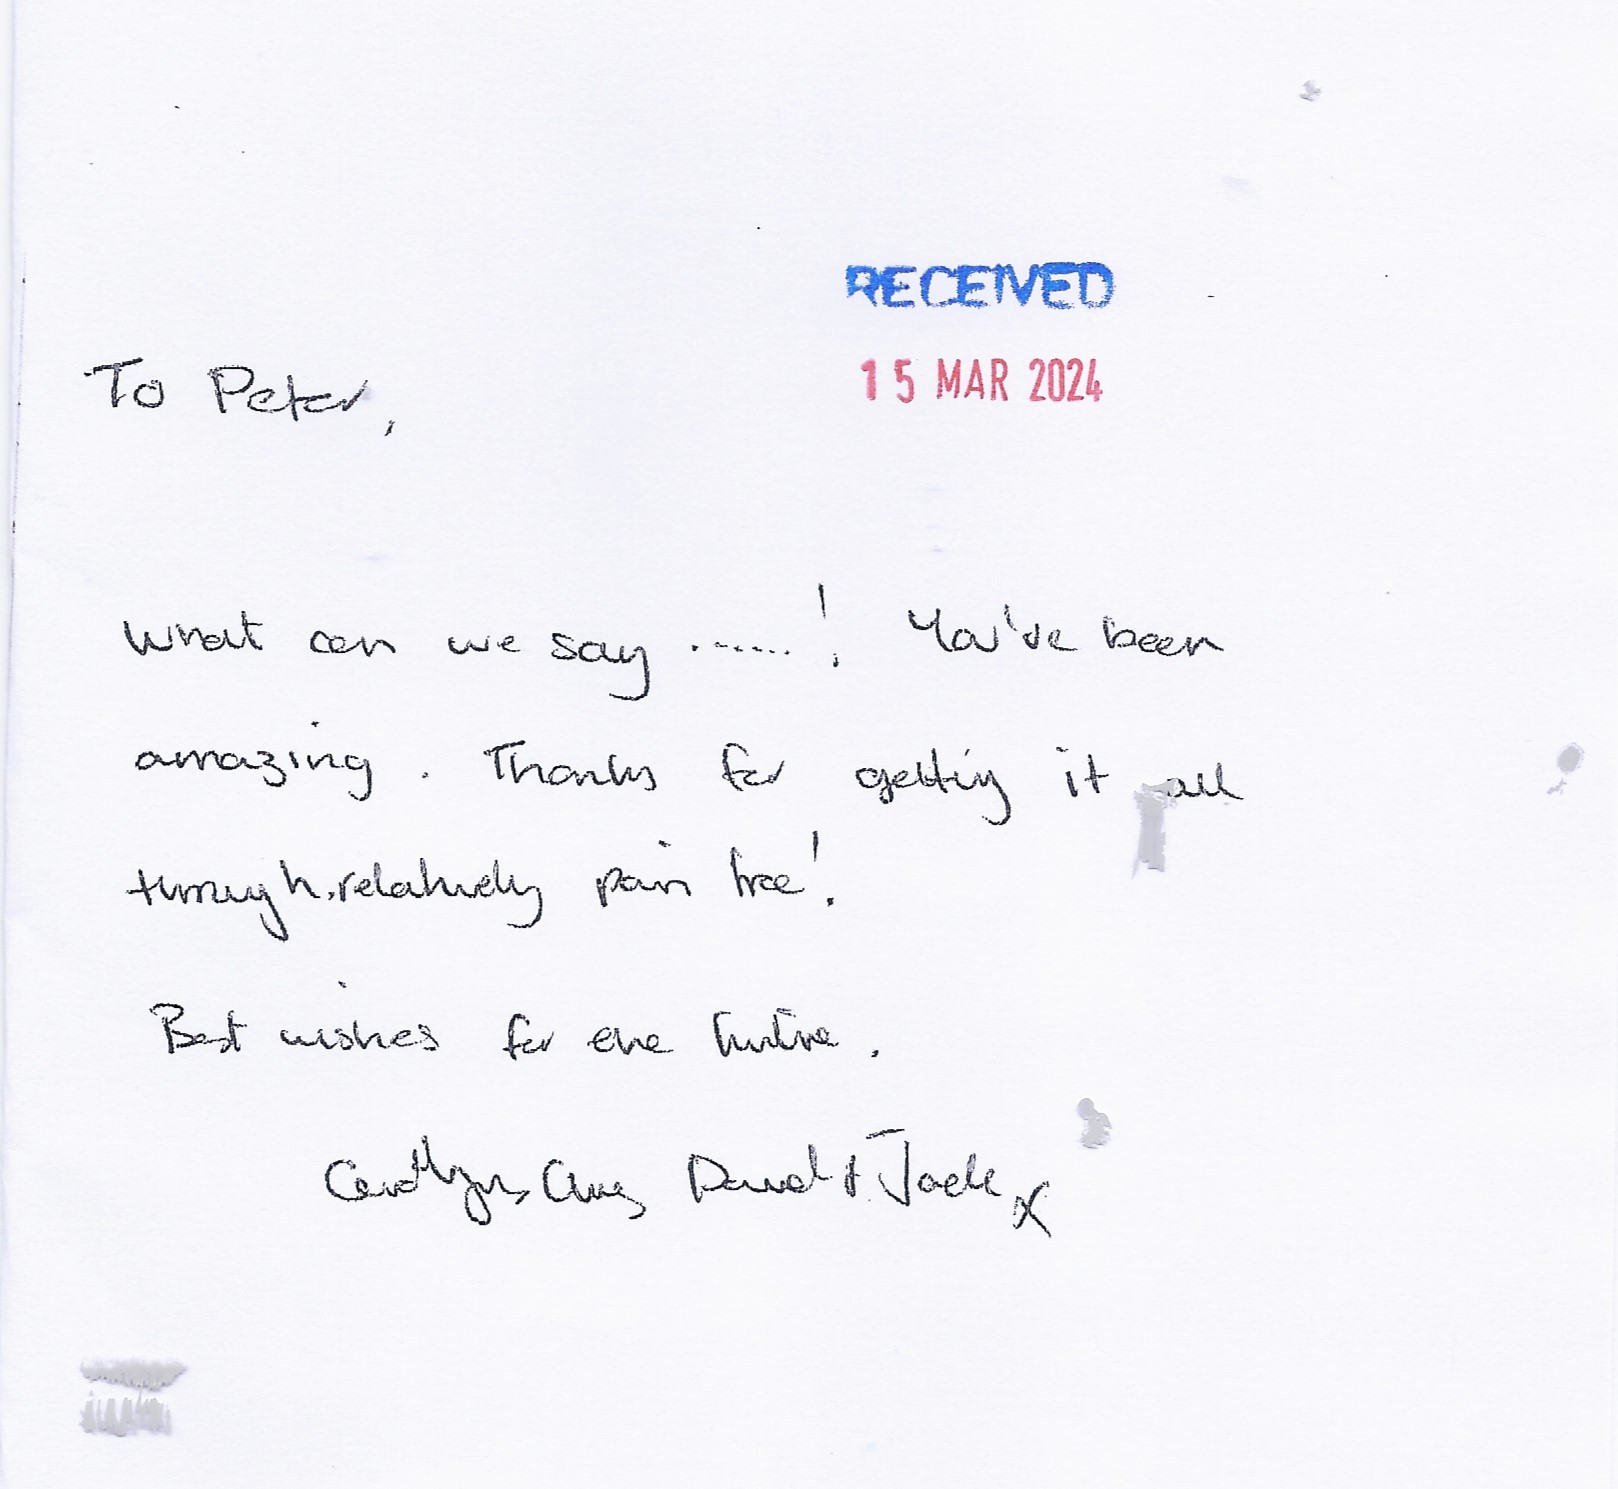 RECEIVED
15 MAR 2024
To Peter,
What can we say ......! You've been
amazing. Thanks for getting it all
through, relatively pain free!
Best wishes for the future.
Carolyn, David & Jack x